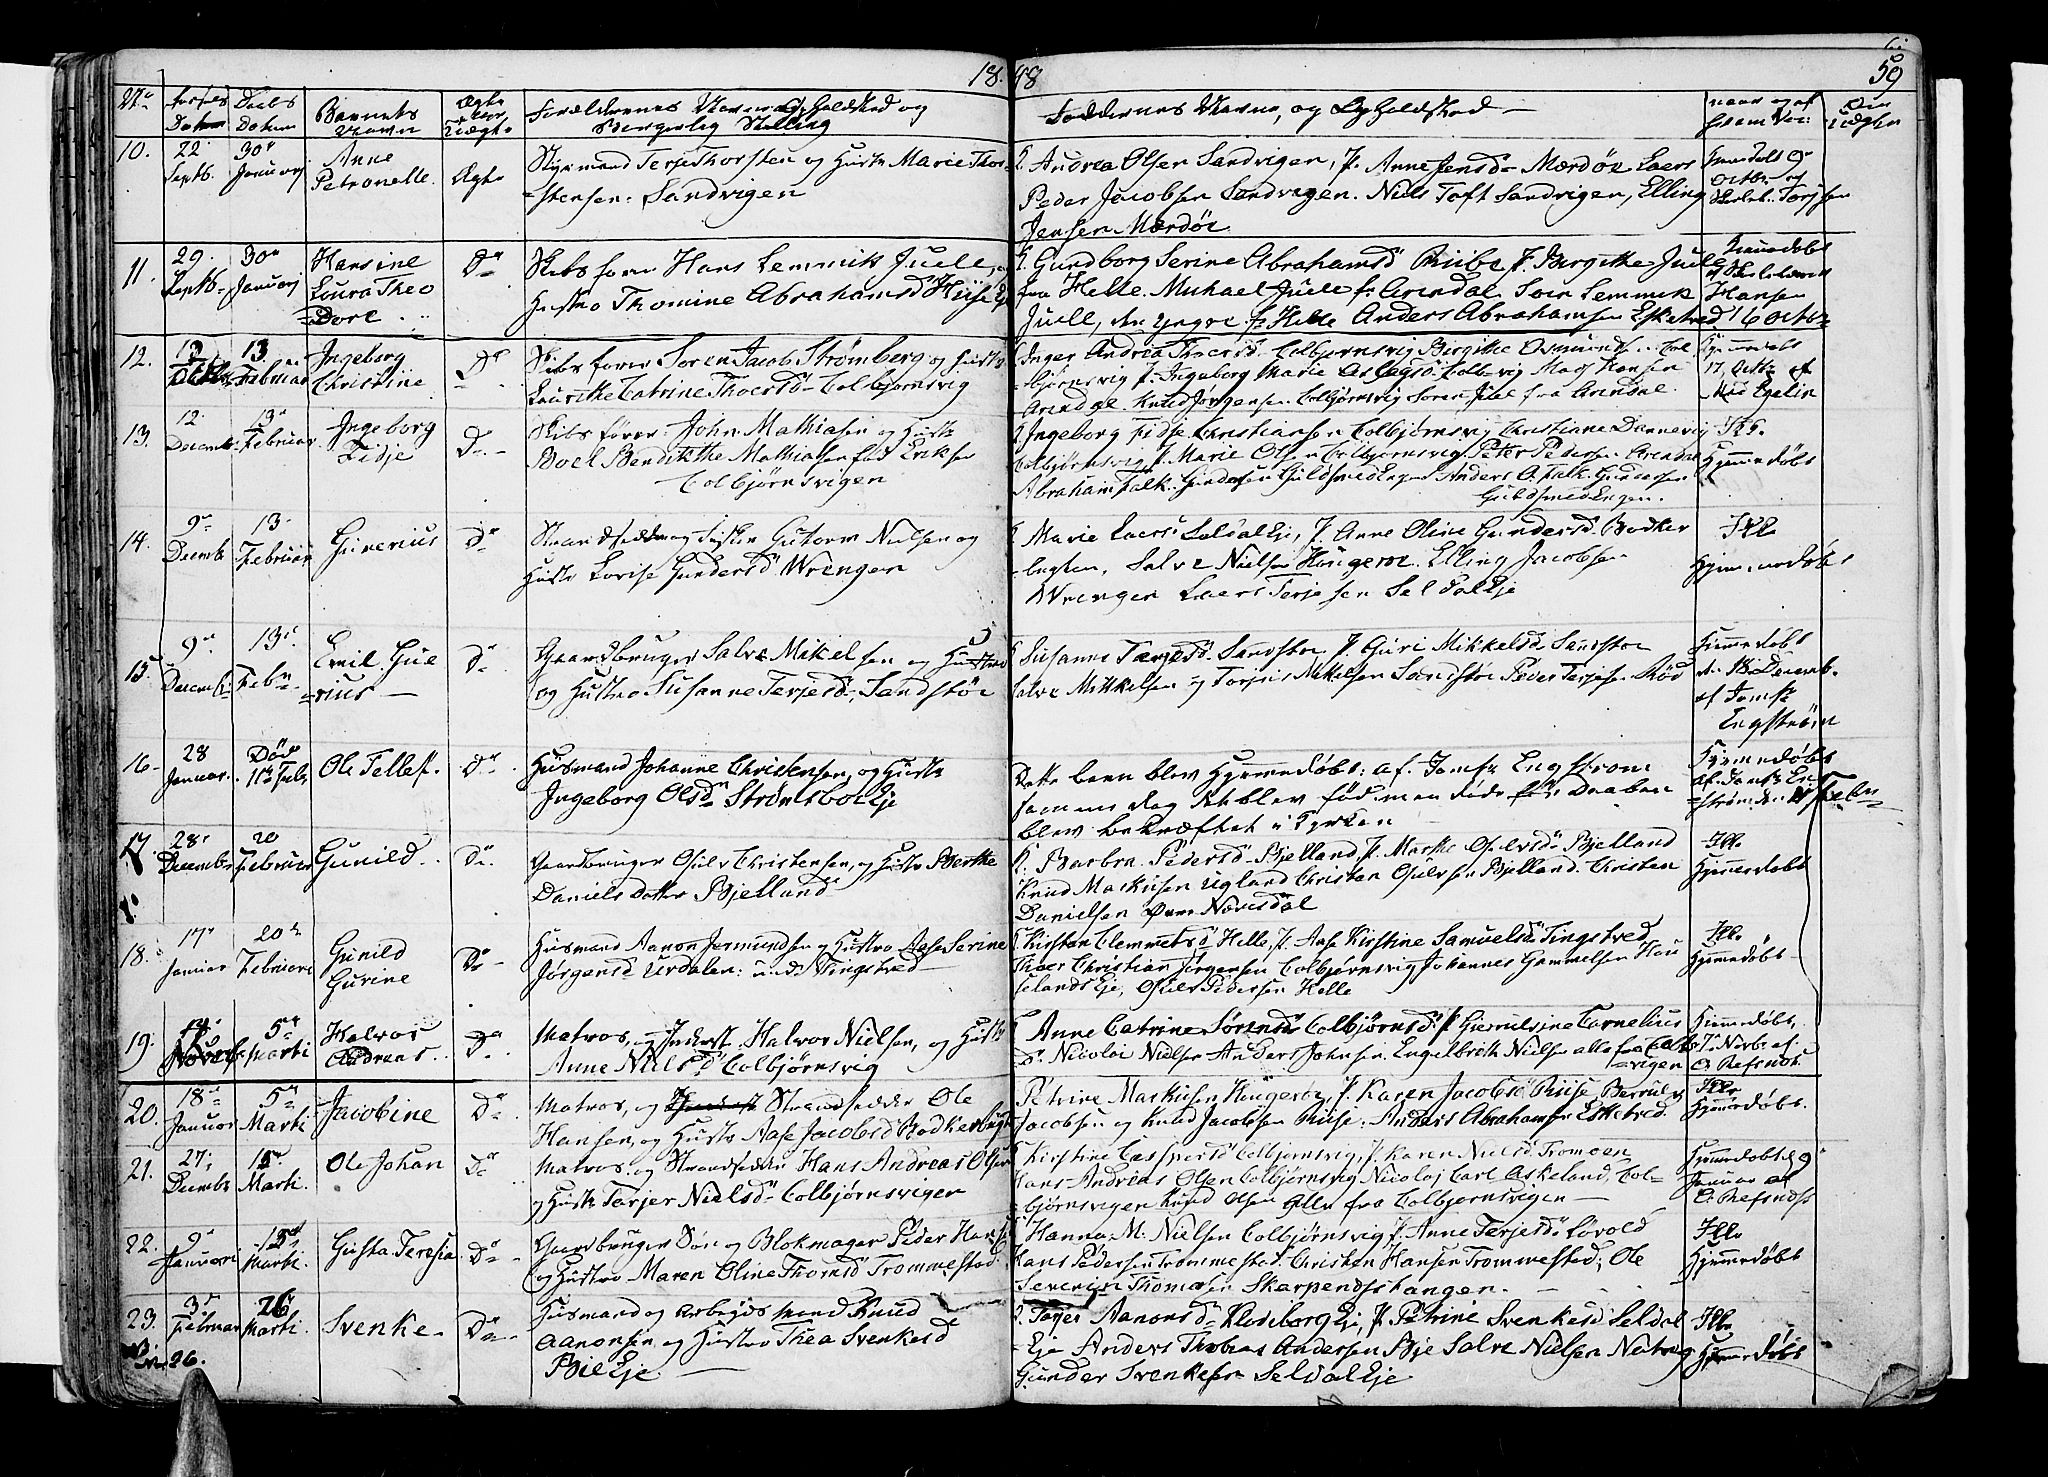 18 48
59
No
Aarets Datum
Daabs Datum
Barnets Navn
Ægte eller Uægte
Forældrenes Navne, Opholdsted og
Borgerlig Stilling
Faddernes Navne, og Opholdsted
naar og af
Den Uægte
10.
22
Septb.
30
Januarj
Anne
Petronelle
Ægte
Styrmand Terje Thorsten og Hustr Marie Thor-
stensen. Sandvigen
Andrea Olsen Sandvigen, F. Anne Jensd Mærdøe Laers
Peder Jacobsen Sandvigen. Niels Toft Sandvigen, Elling
Jensen Mærdøe
11.
29.
Septb
30
Januarj
Hansine
Laura Theo
Dore
Do
Skibsfører Hans Lemmik Juell,
Hustro Thomine Abrahamsd
Gundborg Serine Abrahamsd Riibe F. Birgitte Juell
fra Helle. Mikael Juell fr Arendal, Soen Lemmik
Juell, den yngre fr Helle Anders Abrahamsen Esketved
Hansen
16 Octb
12.
13
13
Februar
Ingeborg
Christine
Do
Skibsfører Soren Jacob Strømberg og Hustr
Lauritke Catrine Thoersd Colbjørnsvig
Inger Andrea Thoersd Colbjornsvig Birgitte Osmunds Col
bjørnsvig F. Ingeborg Marie Colb vig Mads Hansen
Arendal. Knud Jørgensen Colbjørnsvig Soren Juel fra Arendal
17 Octb af
13.
12
Decemb
13
Februar
Ingeborg
Fidje
Do
Skibsfører John Mathiasen og Hustr
Boel Bendikthe Mathiasen fød Eriksen
Colbjørnsvigen
Ingeborg Fidje Christiansen Colbjørnsvig Christiane Dannevig
Colbjørnsvig, F. Marie Olsen Colbjørnsvig Peter Pedersen Arendal
Abraham Falk. Gundersen Guldsmedengen Anders O. Falk. Gundersen
Guldsmedengen.
Hjemmedøbt
14.
9
Decemb
13
Februar
Gunerius
Do
Strandsidder og Fisker Gutorm Nielsen og
Hustr Lovise Gundersd Wrengen
Marie Laers Seldal Eje, F. Anne Oline Gundersd Bodker
bugten, Salve Nielsen Hougerøe. Elling Jacobsen
Wrengen Laers Terjesen Seldal Eje
Hjemmedøbt
15.
9
Decemb
13
Feb
Emil Gue
rius
Do
Gaardbruger Salve Mikelsen og Hustro
og Hustro Susanne Terjesd Sandstøe
Susanne Terjesd. Sandstøe F. Guri Mikkelsd Sandstøe
Salve Mikkelsen og Torjus Mikelsen Sandstøe Peder Terjesen Røed
Hjemmedøbt
af Jomfr
Engstrøm
16
28
Januar
Død
11 Feb
Ole Tellef.
Do
Husmand Johanne Christensen, og Hustr
Ingeborg Olsd Strømsboe Eje
Dette barn blev Hjemmedøbt: af Jomfr Engstrøm
samme dag det blev født, men døde før Daaben
blev bekræftet i Kyrken
Hjemmedøbt
af Jomfr Eng
strøm
17.
28
Decembr
20
Februar
Gunild
Do
Gaardbruger Osulv Christensen, og Hustr Berthe
Daniels Datter Bjelland
Barbra Pedersd Bjelland, F. Marthe Osulvsd Bjelland
Knud Markusen Ugland Christen Osulvsen Bjelland. Christen
Danielsen Øvre Nævisdal
Hjemmedøbt
18.
17
Januar
20
Februari
Gunild
Gurine
Do
Husmand Aanon Jermundsen og Hustro Aase Serine
Jørgensd Urdalen: und Tingstved
Kirsten Clemmetsd Helle, F. Aase Kirstine Samuelsd Tingstved
Thoer Christian Jørgensen Colbjørnsvig Johannes Gammelsen
selands Eje, Osulv Pedersen Helle
Hjemmedøbt
19.
5
Marti
Halvor
Andreas
Do
Matros, og Inderst Halvor Nielsen, og Hustr
Anne Nielsd Colbjørnsvig
Anne Catrine Sørensd Colbjørnsd F. Gjerulsine Cornelius
d. Nicolai Nielsen Anders Johnsen, Engelbrith Nielsen alle fra Colb
vigen
Hjemmedøbt
7 Novbr af
C. Refsnæs
20.
18
Januar
5
Marti
Jacobine
Do
Matros, og Strandsidder Ole
Hansen, og Hustr Aase Jacobsd Bodkerbugt
Petrine Markusen Hougerøe, F. Karen Jacobsd Riise,
Jacobsen og Knud Jacobsen Riise, Anders Abrahamsen Esketved
Hjemmedøbt.
21.
27
Decembr
Marti
Ole Johan
Do
Matros, og Strandsidder Hans Andreas Olsen
og Hustr Tarjer Nielsd Colbjørnsvigen
Kirstine Caspersd Colbjørnsvig, F. Karen Nielsd Tromøen
Hans Andreas Olsen Colbjørnsvig Nicolaj Carl Askeland, Col-
bjørnsvigen Knud Olsen alle fra Colbjørnsvigen
Hjemmedøbt 9
Januar af
C. Refsnæs
22.
9
Januari
Marti
Gusta Teresia
Do
Gaardbruger Søn og Blokmager Peder Hansen
og Hustro Maren Oline Thomsd Trommestad
Hanna M. Nielsen Colbjørnsvig F. Anne Terjesd Løvold
Hans Pedersen Trommestad. Christen Hansen Trommestad; Ole
Severin Thomasen Skarpendstangen.
Hjemmedøbt
23.
3
Februar
26
Marti
Svenke
Do
Husmand og Arbejds mand Knud
Aanonsen og Hustro Thea Svenkesd
Bie Eje
Tager Aanonsd Kloeiborg Eje, F. Petrine Svenkesd Seldal
Eje Anders Thobias Andersen Bje Salve Nielsen Natvig
Gunder Svenkesen Seldal Eje
Hjemmedøbt
26.